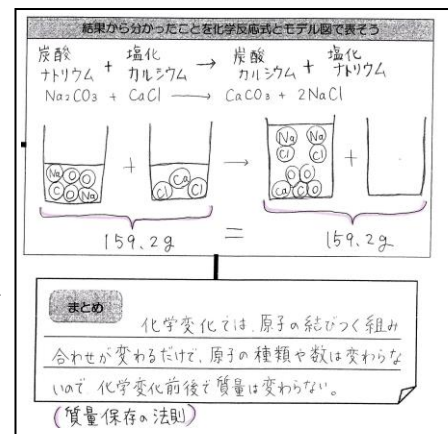 結果から分かったことを化学反応式とモデル図で表そう
炭酸ナトリウム + 塩化カルシウム → 炭酸カルシウム + 塩化ナトリウム
Na₂CO₃ + CaCl ⟶ CaCO₃ + 2NaCl
Na O O C O Na + Ca Cl Cl → Na Na Cl Cl O O Ca C O +
159.2g = 159.2g
まとめ
化学変化では、原子の結びつく組み
合わせが変わるだけで、原子の種類や数は変わらな
いので 化学変化前後で質量は変わらない。
(質量保存の法則)